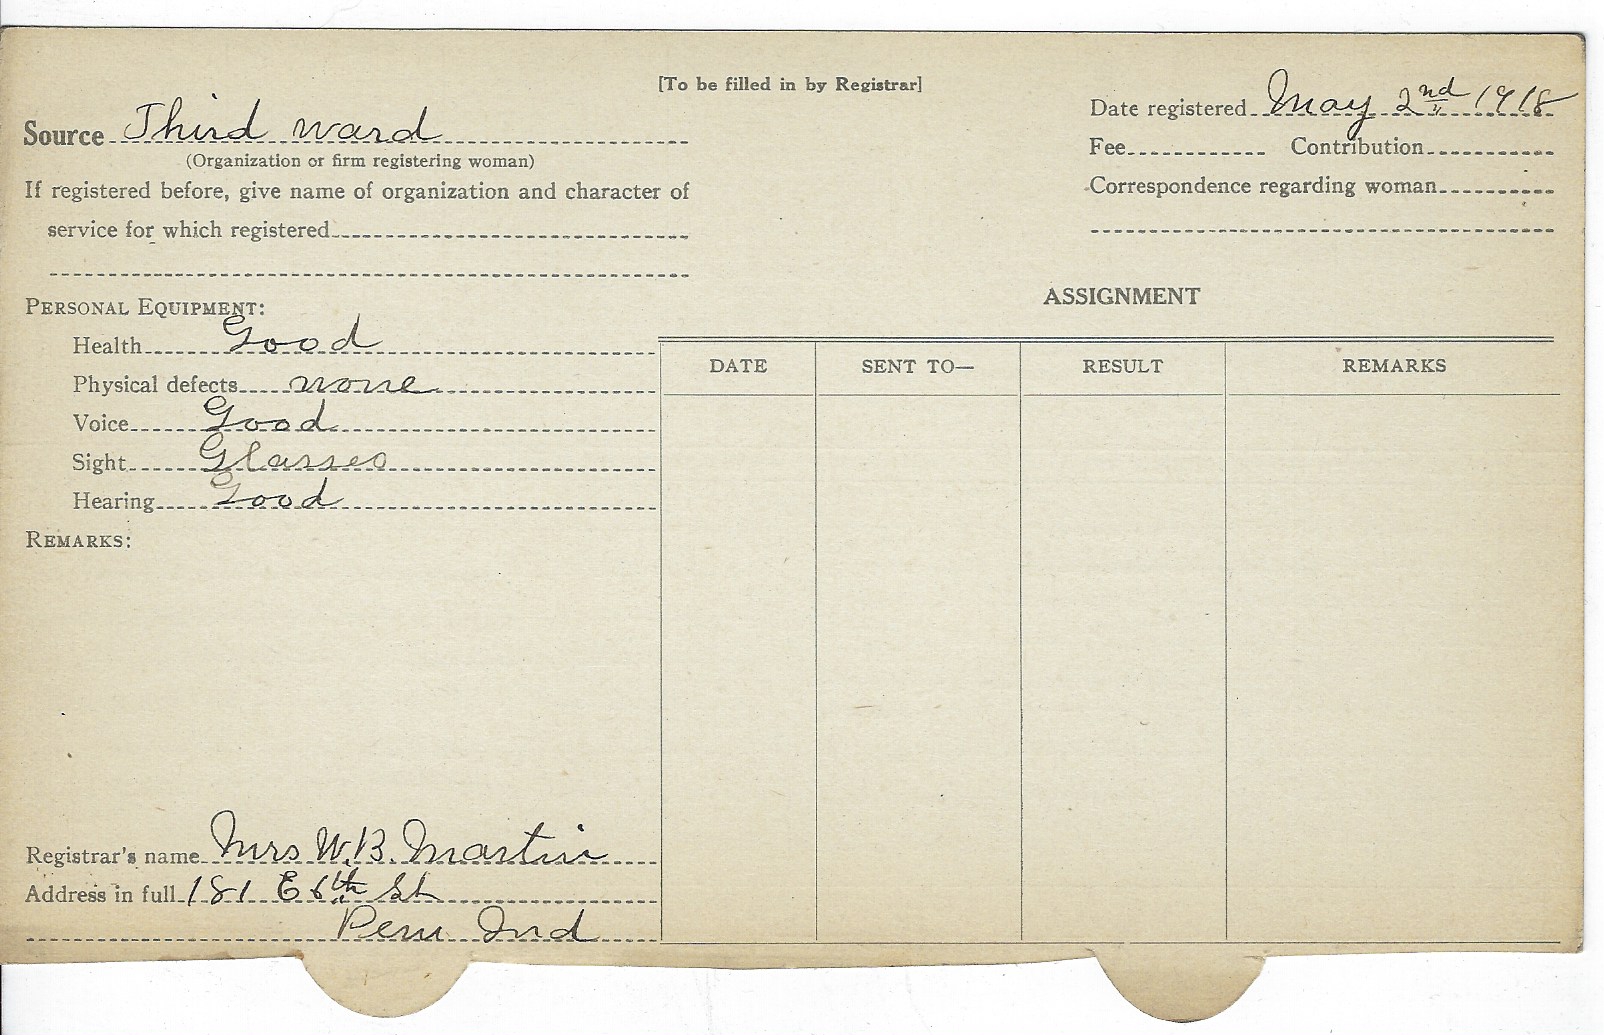 [To be filled in by Registrar]
Source Third ward
(Organization or firm registering woman)
If registered before, give name of organization and character of
service for which registered
Date registered May 2nd 1918
Fee Contribution
Correspondence regarding woman
PERSONAL EQUIPMENT:
Health Good
Physical defects none
Voice Good
Sight Glasses
Hearing Good
REMARKS:
ASSIGNMENT
DATE SENT TO— RESULT REMARKS
Registrar's name Mrs W.B. Martin
Address in full 181 E 6th St
Peru Ind